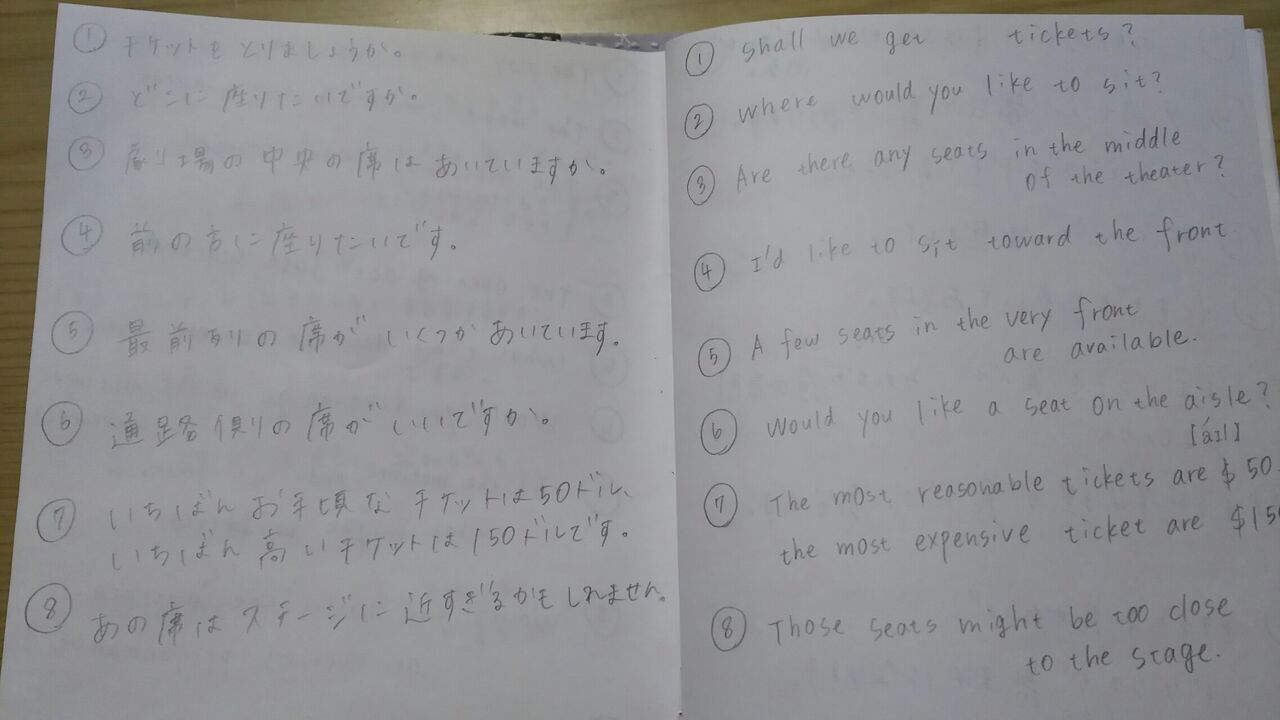 ① チケットをとりましょうか。
② どこに座りたいですか。
③ 劇場の中央の席はあいていますか。
④ 前の方に座りたいです。
⑤ 最前列の席がいくつかあいています。
⑥ 通路側の席がいいですか。
⑦ いちばんお手頃なチケットは50ドル、
いちばん高いチケットは150ドルです。
⑧ あの席はステージに近すぎるかもしれません。
① Shall we get tickets?
② Where would you like to sit?
③ Are there any seats in the middle
of the theater?
④ I'd like to sit toward the front.
⑤ A few seats in the very front
are available.
⑥ Would you like a seat on the aisle?
[áɪl]
⑦ The most reasonable tickets are $50.
the most expensive ticket are $150
⑧ Those seats might be too close
to the stage.